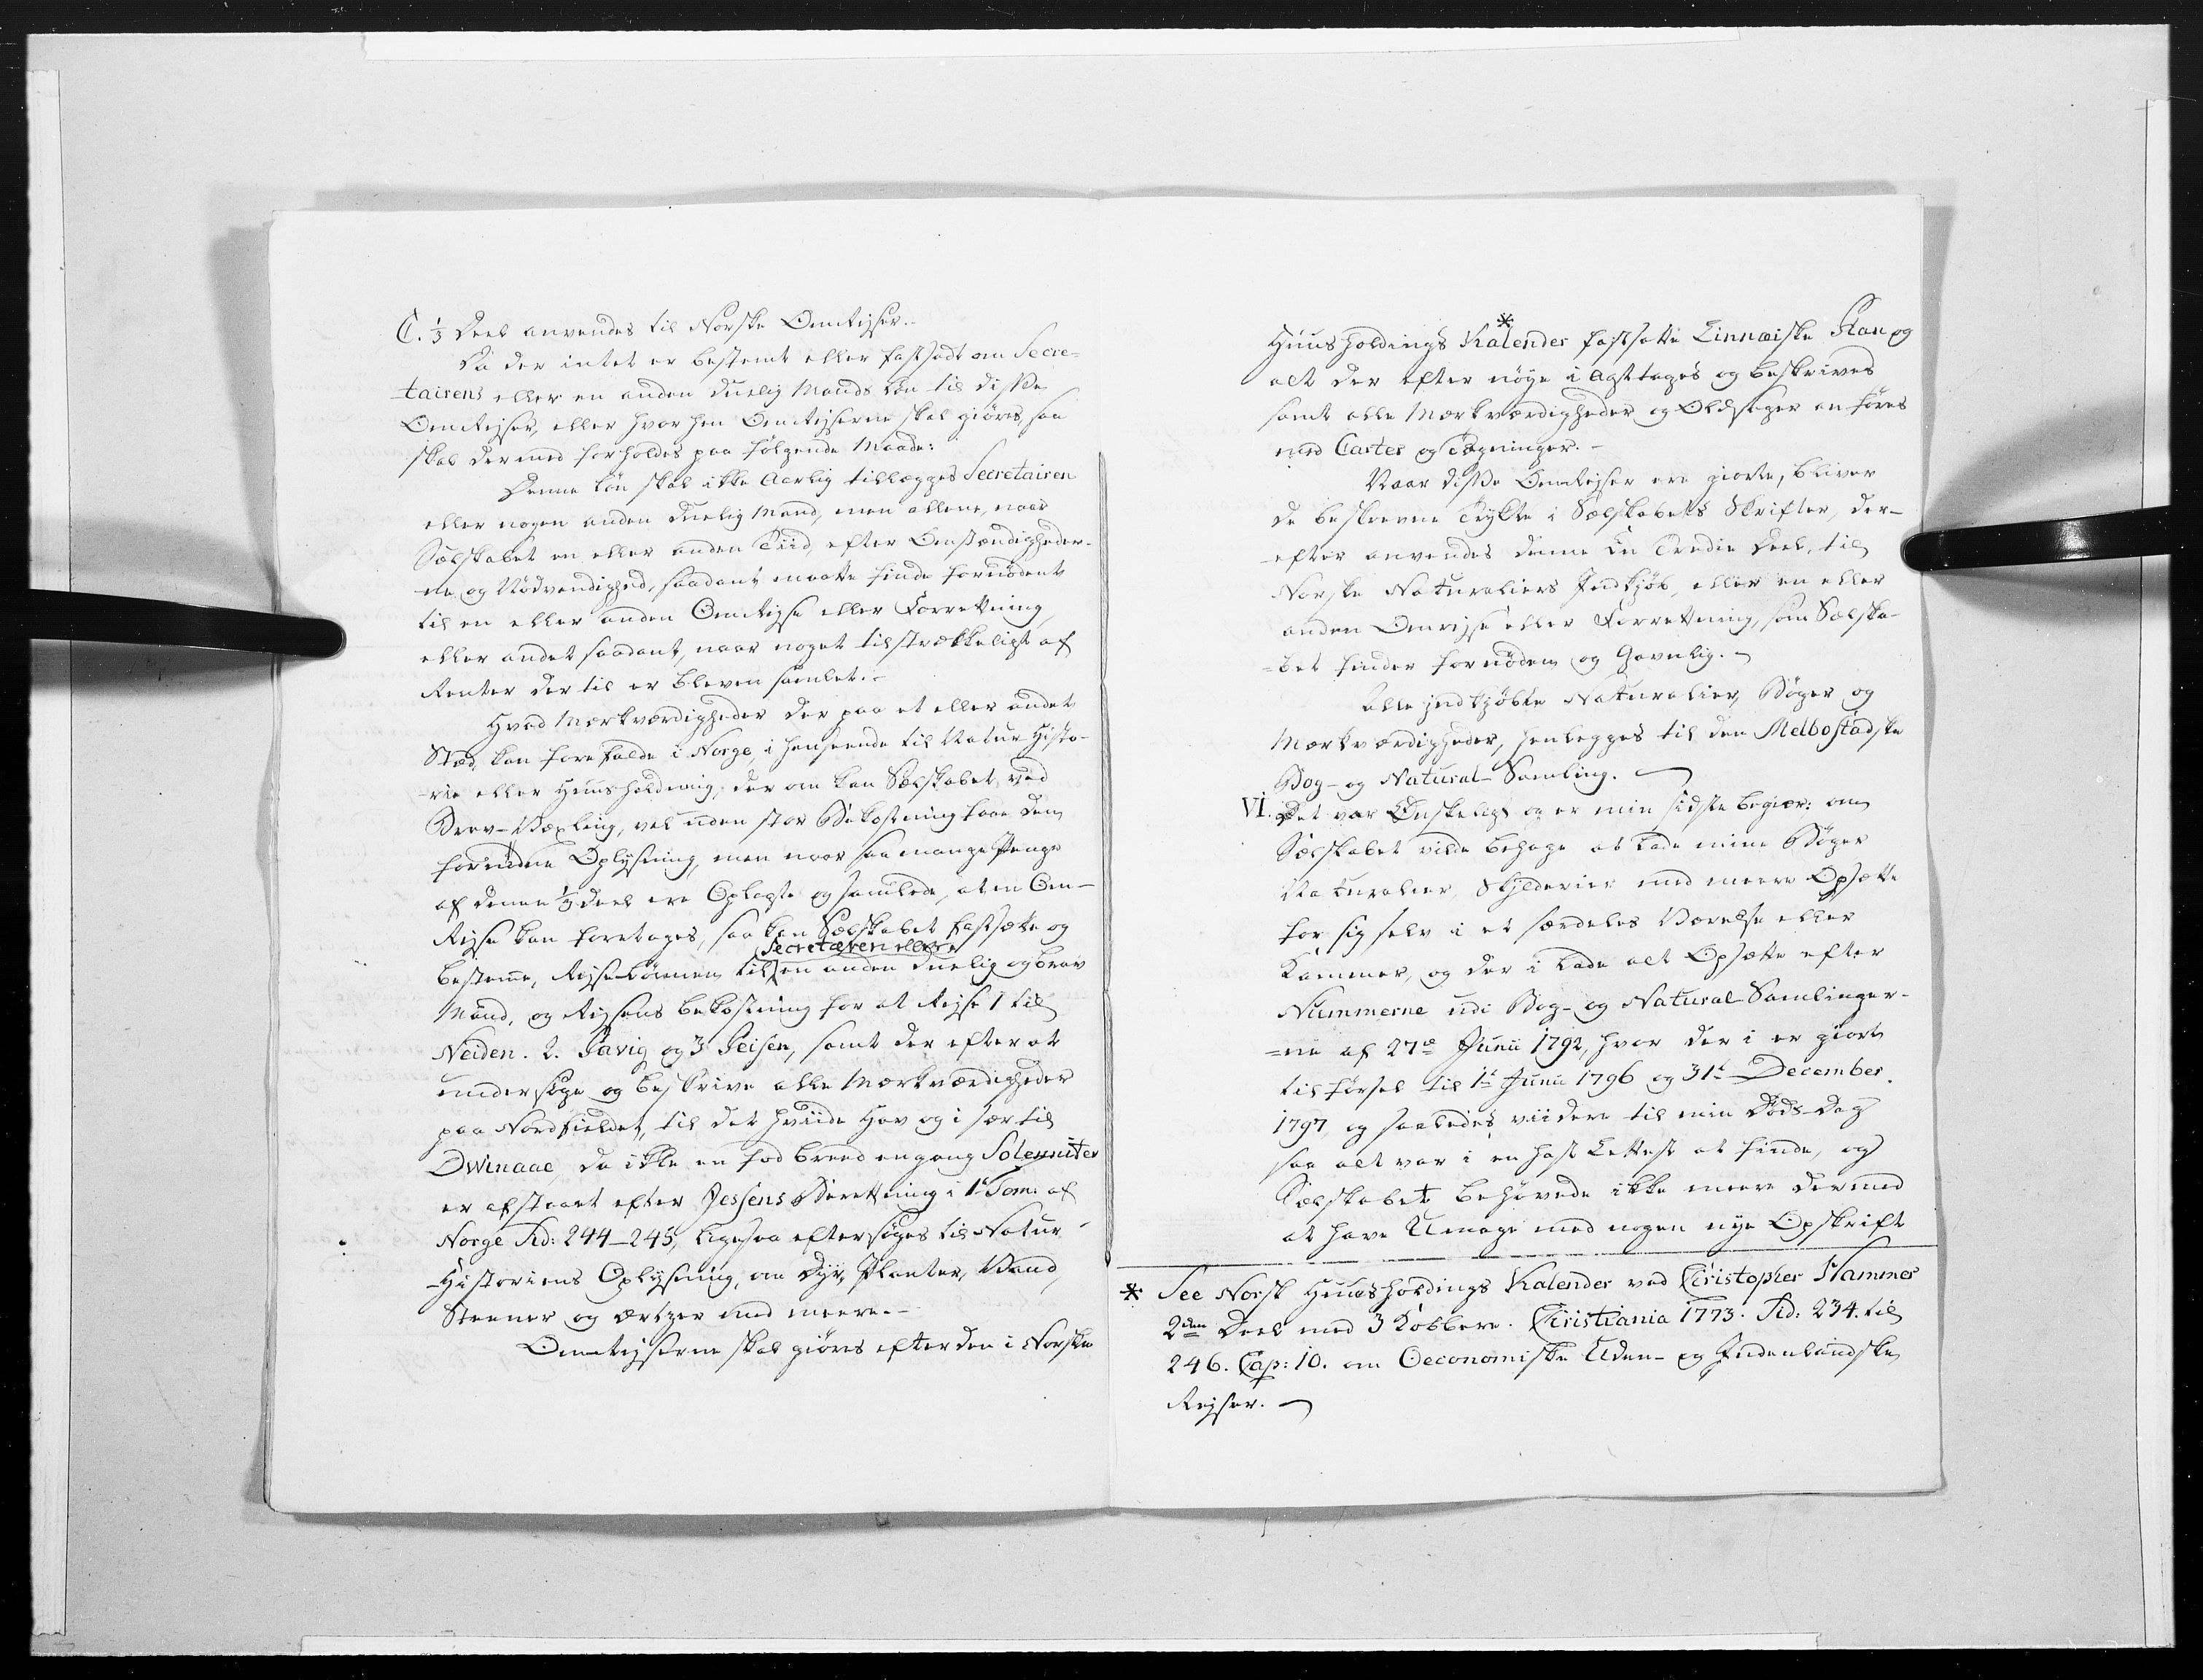 C. 1/3 Deel anvendes til Norske Omrejser.
Da der intet er bestemt eller fastsadt om Secre-
tairens eller en anden duelig Mands Løn til disse
Omrejser, eller hvorhen Omrejserne skal giøres, saa
skal dermed forholdes paa følgende Maade:
Denne Løn skal ikke Aarlig tillægges Secretairen
eller nogen anden duelig Mand, men allene, naar
Sælskabet en eller anden Tiid, efter Omstændigheder-
ne og Nødvendighed, saadant maatte finde fornødent
til en eller anden Omrejse eller Forretning,
eller andet saadant, naar noget tilstrækkeligt af
Renter der til er bleven samlet.-
Hvad Mærkværdigheder der paa et eller andet
Stæd kan forefalde i Norge, i henseende til Natur-Histo-
rie eller Huusholdning, der om kan Sælskabet ved
Brev-Vexling, vel uden stor Bekostning faae den
fornødne Oplysning, men naar saa mange Penge
af denne 1/3 Deel ere Oplagte og samlede, at en Om-
Rejse kan foretages, saa kan Sælskabet fastsætte og
Secretæren eller
bestemme, Rejse-Lønnen til en anden duelig og brav
Mand, og Rejsens bekostning for at Rejse 1 til
Neiden. 2. Pavig og 3 Peisen, samt der efter at
undersøge og beskrive alle Mærkværdigheder
paa Nordfieldet, til det hviide Hav og i sær til
Dwinaae, da ikke en fod breed engang Solenniter
er afstaaet efter Jessens Berettning i 1t Tom: af
Norge Pd: 244-245, ligesaa eftersøges til Natur-
Historiens Oplysning, om Dyr, Planter, Vand,
Steener og Ærtzer med meere.-
Omrejserne skal giøres efter den i Norske
*
Huusholdings Kalender fastsatte Linnæiske Plan og
alt der efter nøye i Agttages og beskrives
samt alle Mærkværdigheder og Oldsager anføres
med Carter og Tegninger.-
Naar disse Omrejser ere giorte, bliver
de beskrevne Trykte i Sælskabets Skrifter, der-
efter anvendes denne En Tredie Deel, til
Norske Naturaliers Indkjøb, eller en eller
anden Omrejse eller Forrettning, som Sælska-
=bet finder fornøden og Gavnlig.-
Alle indkjøbte Naturalier, Bøger og
Mærkværdigheder, henlegges til den Melbostadske
Bog- og Natural-Samling.
VI. Det var Ønskeligt og er min sidste begiær: om
Sælskabet vilde behage at lade mine Bøger
Naturalier, Skilderier med meere Opsætte
for sig selv i et særdeles Værelse eller
Kammer, og der i lade alt Opsætte efter
Nummerne udi Bog- og Natural-Samlinger-
=ne af 27de Junii 1792, hvor der i er giort
tilførsel til 1te Junii 1796 og 31te December
1797, og saaledes viidere til min Døds-Dag
saa alt var i en hast Lettest at finde, og
Sælskabet behøvede ikke meere dermed
at have Umage med nogen nye Opskrift
* See Norsk Huusholdings Kalender ved Christopher Hammer
2den Deel med 3 Kobbere. Christiania 1773. Pd: 234. til
246. Cap: 10. om Oeconomiske Uden- og Indenlandske
Rejser.